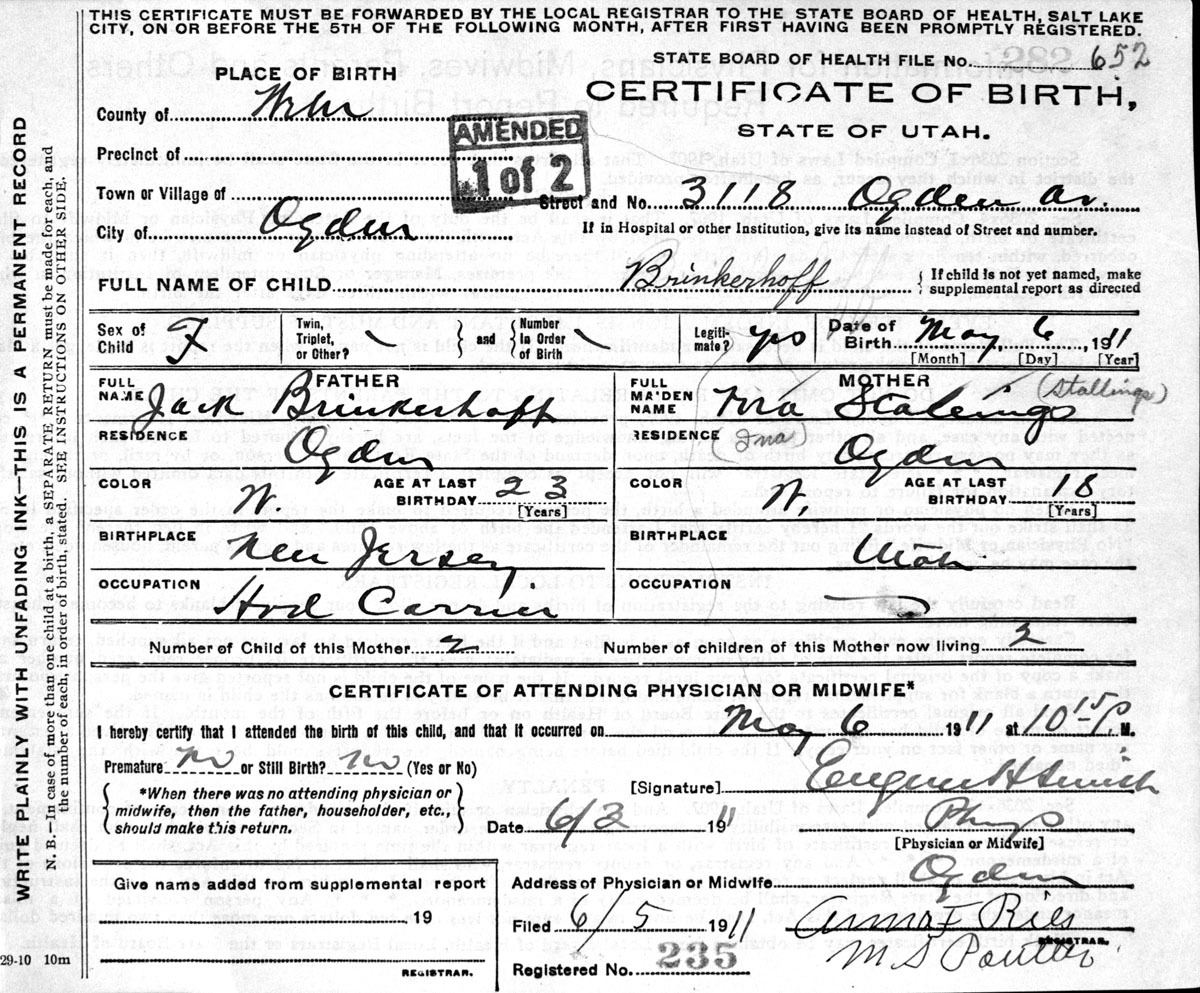 THIS CERTIFICATE MUST BE FORWARDED BY THE LOCAL REGISTRAR TO THE STATE BOARD OF HEALTH, SALT LAKE
CITY, ON OR BEFORE THE 5TH OF THE FOLLOWING MONTH, AFTER FIRST HAVING BEEN PROMPTLY REGISTERED.
STATE BOARD OF HEALTH FILE No. 652
PLACE OF BIRTH
CERTIFICATE OF BIRTH,
STATE OF UTAH.
County of
AMENDED
1 of 2
Precinct of
Town or Village of
Street and No. 3118 Ogden Av.
City of Ogden
If in Hospital or other Institution, give its name instead of Street and number.
FULL NAME OF CHILD Brinkerhoff
If child is not yet named, make
supplemental report as directed
Sex of Child F
Twin, Triplet, or Other?
and
Number in Order of Birth
Legiti-mate? yes
Date of Birth May 6, 1911
[Month] [Day] [Year]
FATHER
FULL NAME Jack Brinkerhoff
MOTHER
FULL MAIDEN NAME Ina Stalings (Stallings)
(Ina)
RESIDENCE Ogden
RESIDENCE Ogden
COLOR W AGE AT LAST BIRTHDAY 23 [Years]
COLOR W AGE AT LAST BIRTHDAY 18 [Years]
BIRTHPLACE New Jersey
BIRTHPLACE Utah
OCCUPATION Hod Carrier
OCCUPATION
Number of Child of this Mother 2
Number of children of this Mother now living 2
CERTIFICATE OF ATTENDING PHYSICIAN OR MIDWIFE*
I hereby certify that I attended the birth of this child, and that it occurred on May 6 1911 at 10 15 P M.
Premature no or Still Birth? no (Yes or No)
*When there was no attending physician or
midwife, then the father, householder, etc.,
should make this return.
[Signature] Eugene H Smith
Date 6/2 1911 Phys
[Physician or Midwife]
Give name added from supplemental report
Address of Physician or Midwife Ogden
, 19
Filed 6/5 1911
REGISTRAR.
REGISTRAR.
M S Poulter
Registered No. 235
29-10 10m
WRITE PLAINLY WITH UNFADING INK—THIS IS A PERMANENT RECORD
N. B.—In case of more than one child at a birth, a SEPARATE RETURN must be made for each, and
the number of each, in order of birth, stated. SEE INSTRUCTIONS ON OTHER SIDE.